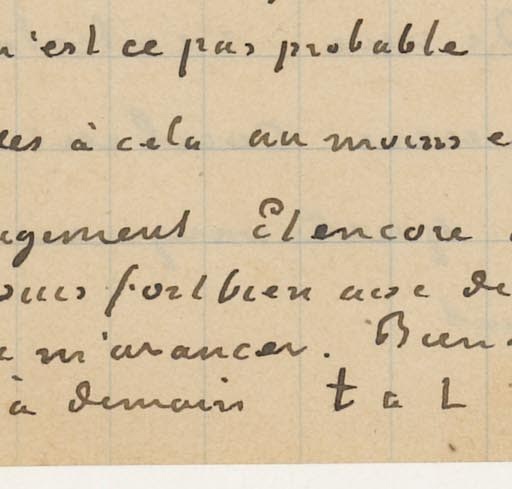 n'est ce pas probable
ées à cela au moins e
agement Et encore
vous fort bien aise de
m'avancer. Bien
à demain t à t